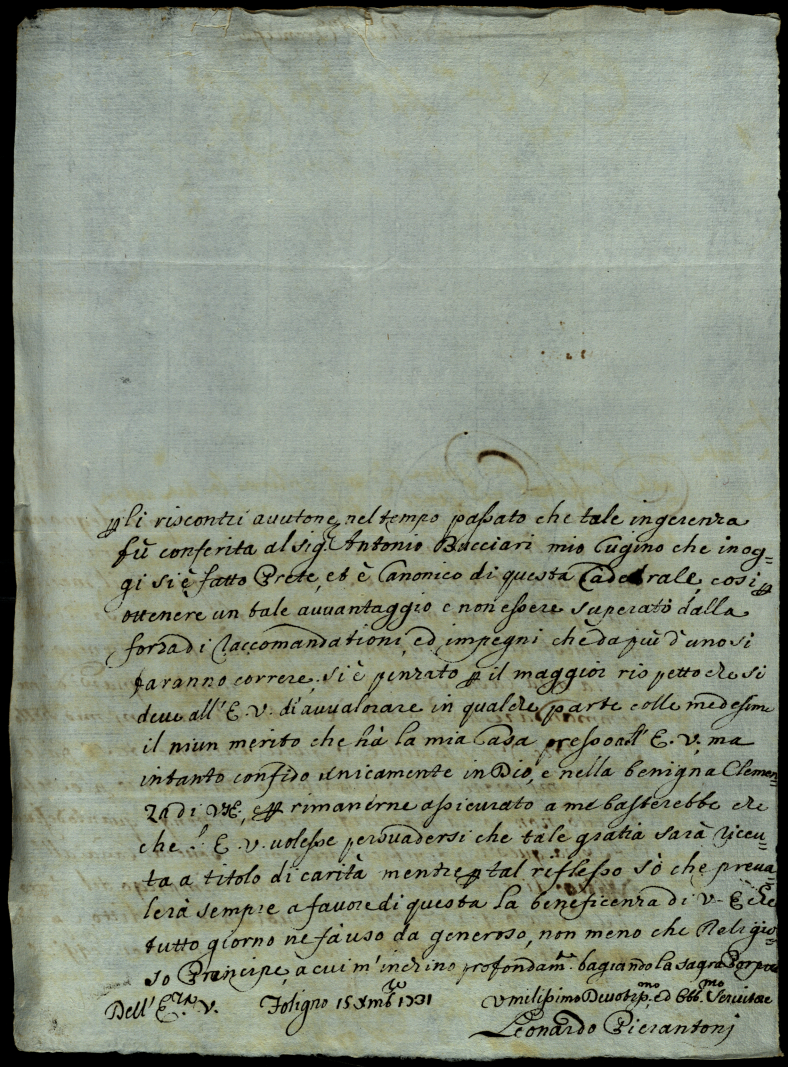 ꝑ li riscontri avutone, nel tempo passato che tale ingerenza
fù conferita al sig.r Antonio Bucciari mio Cugino che in og=
gi si è fatto Prete, et è Canonico di questa Cadedrale, così ꝑ
ottenere un tale avvantaggio e non essere superato dalla
forza di raccomandationi, ed impegni che da più d'uno si
faranno correre, si è penzato ꝑ il maggior rispetto che si
deve all'E. V. di avvalorare in qualche parte colle medesime
il niun merito che hà la mia Casa presso all'E. V., ma
intanto confido unicamente in Dio, e nella benigna Clemen=
za di V.E., e ꝑ rimanerne assicurato a me basterebbe che
che l'E. V. volesse persuadersi che tale gratia sarà riceu=
ta a titolo di carità mentre ꝑ tal riflesso sò che preva=
lerà sempre a favore di questa la beneficenza di V. E. che
tutto giorno ne fà uso da generoso, non meno che Religio=
so Principe, a cui m'inchino profondam.e bagiando la sagra Porpora
Dell'E.V. Foligno 15 Xmb.re 1731 Umilissimo Devotis.mo ed Obb.mo Servitore
Leonardo Pierantonj